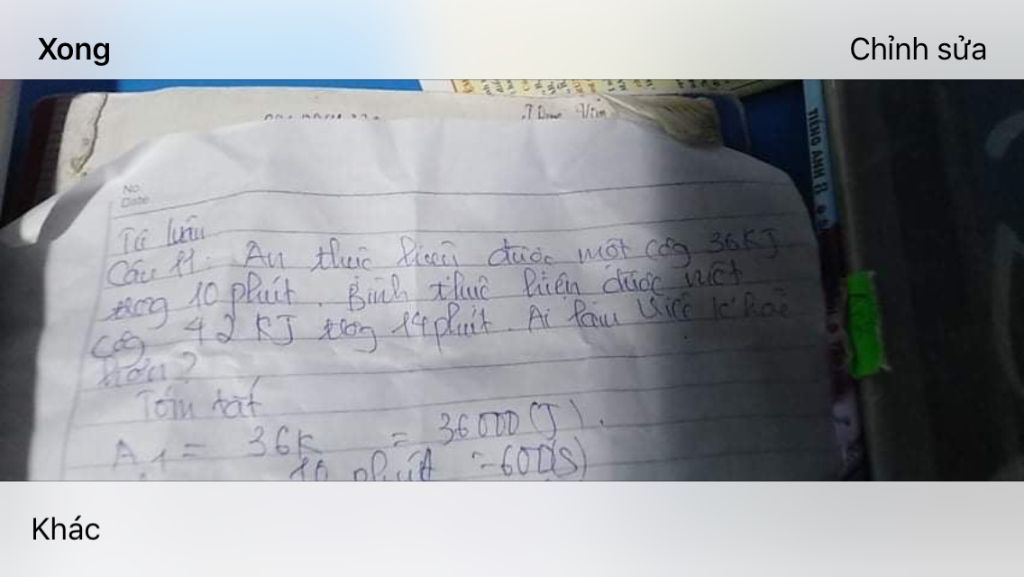 Xong
Chỉnh sửa
No.
Date
Tự luận
Câu 11: An thực hiện được một công 36KJ
trong 10 phút. Bình thực hiện được một
công 42 KJ trong 14 phút. Ai làm việc khoẻ
hơn?
Tóm tắt
A1 = 36K = 36000 (J).
10 phút = 600(s)
TIẾNG ANH 8
Khác